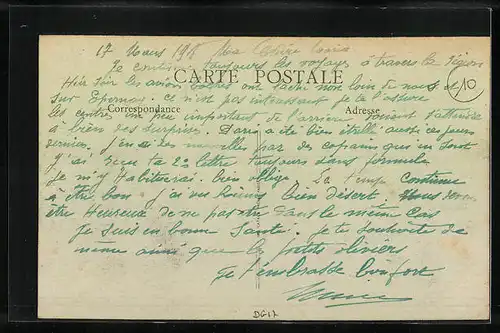 17 Mars 191
Je continue toujours les voyages à travers la région
Hier soir les avions boches ont non loin de nous et
CARTE POSTALE
10
sur Epernay. ce n'est pas intéressant je te l'assure
Correspondance
Adresse
les centres un peu important de l'arrière doivent s'attendre
à bien des surprises. Paris a été bien étrillé aussi ces jours
derniers. J'en ai des nouvelles par des copains qui en sont
J'ai reçu ta 2e lettre toujours dans formule
je m'y habituerai. bien obligé. Le temps continue
à être bon j'ai vu bien désert. Vous
être Heureuse de ne pas être dans le même cas
je suis en bonne santé. Je te souhaite de
même ainsi que les petits oliviers
je t'embrasse bien fort
DG17